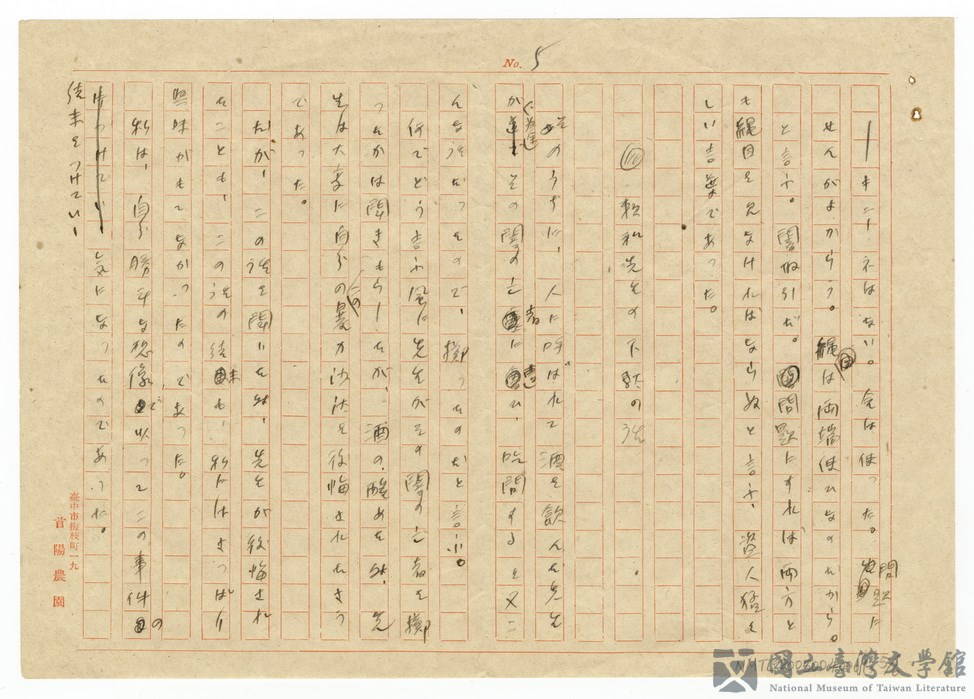 No. 5
ーキニーネはない。金は使った。問題に
せんがよからう。縄は両端使ひなのだから。
と言ふ。闇取引だ。問題にすれば両方と
も縄目を見なければならぬと言ふ、盗人猛々
しい言葉であった。
(四) 頼和先生の下獄の話
そのうちに、人に呼ばれて酒を飲んだ先生
が、その闇の亡者に出遭ひ、詰問すると又こ
んな話だったので、擲ったのだと言ふ。
何でどう言ふ風に先生がその闇の亡者を擲
つたかは聞きもらしたが、酒の醒めた後、先
生は大変に自分のこの暴力沙汰を後悔されたさう
であった。
だが、この話を聞いた時、先生が後悔され
たことも、この話の結末も、私にはさっぱり
興味がもてなかったのであった。
私は、自分勝手な想像で以ってこの事件の
結末をつけてい
気になったのであった。
臺中市梅枝町一九
首陽農園
國立臺灣文學館
National Museum of Taiwan Literature